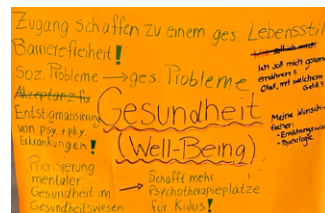 Zugang schaffen zu einem ges. Lebensstil
Barrierefreiheit!
Soz. Probleme → ges. Probleme
Akzeptanz für
Entstigmatisierung
von psy. + phy.
Erkrankungen!
Gesundheit
(Well-Being)
Priorisierung
mentaler
Gesundheit im
Gesundheitswesen
→ Schafft mehr
Psychotherapieplätze
für Kidus!
Ich soll mich gesund
ernähren?
Olaf, mit welchem
Geld?
Meine Wunsch-
fächer:
- Psychologie